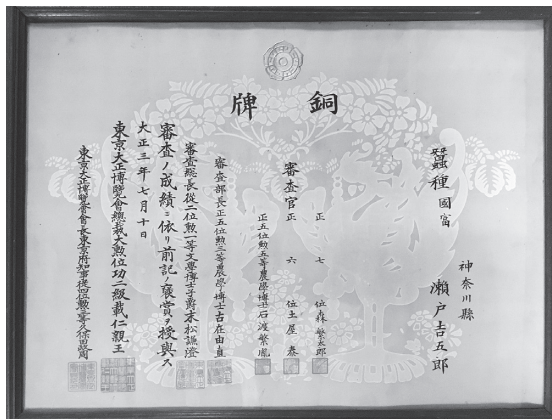 銅牌
神奈川縣
瀬戸吉五郎
蠶種 國富
審査官
正七位森繁太郎
正六位土屋泰
正五位勲五等農學博士石渡繁胤
審査部長正五位勲三等農學博士古在由直
審査總長從二位勲一等文學博士子爵末松謙澄
審査ノ成績ニ依リ前記ノ褒賞ヲ授與ス
大正三年七月十日
東京大正博覽會總裁大勲位功二級載仁親王
東京大正博覽會會長東京府知事從四位勲三等久保田政周